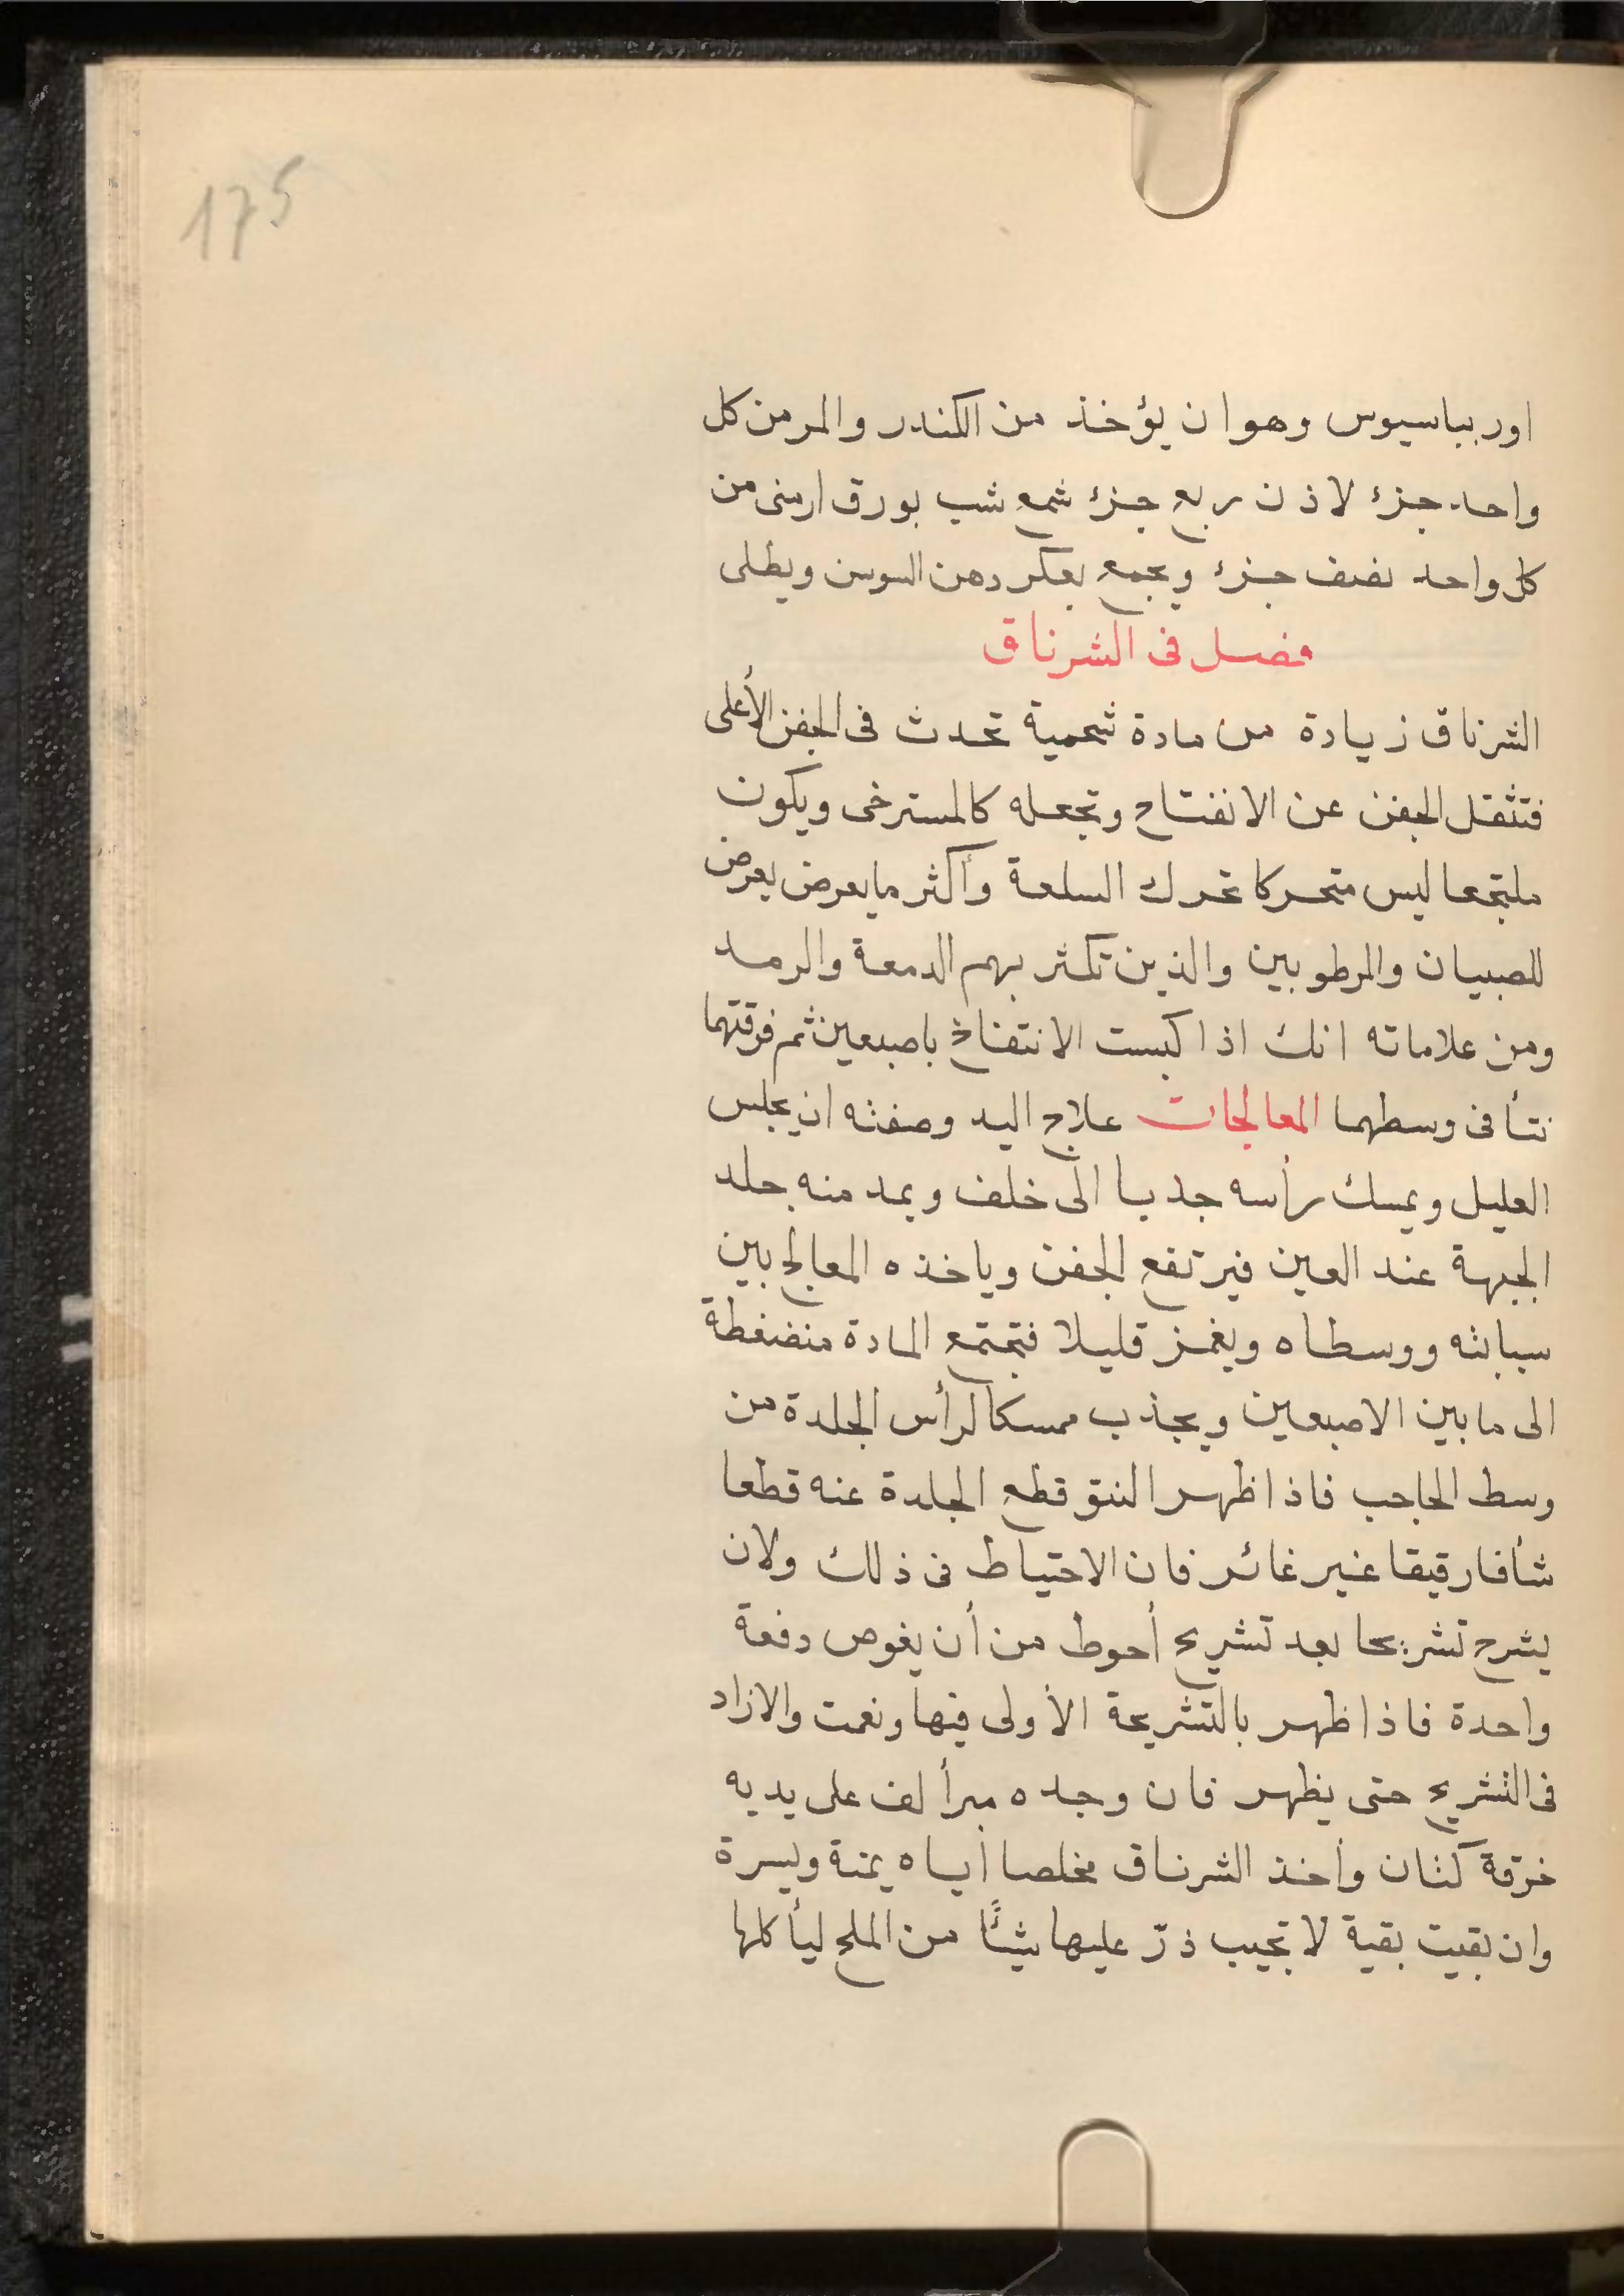 175
اوربباسيوس وهوان يؤخذ من الكندر والمر من كل
واحد جزء لاذن ربع جزء شمع شب بورق ارمنى من
كل واحد نصف جزء ويجمع بعكر دهن السوسن ويطلى
فصل فى الشرناق
الشرناق زيادة من مادة شحمية تحدث فى الجفن الأعلى
فتثقل الجفن عن الانفتاح وتجعله كالمسترخى ويكون
ملتجعا ليس متحركا تحرك السلعة وأكثر ما يعرض يعرض
للصبيان والمرطوبين والذين تكثر بهم الدمعة والرمد
ومن علاماته انك اذا كبست الانتفاخ باصبعين ثم فرقتهما
نتأ فى وسطهما المعالجات علاج اليد وصفته ان يجلس
العليل ويمسك رأسه جذبا الى خلف ويمد منه جلد
الجبهة عند العين فيرتفع الجفن وياخذه المعالج بين
سبابته ووسطاه ويغمز قليلا فتجتمع المادة منضغطة
الى ما بين الاصبعين ويجذب ممسكا لرأس الجلدة من
وسط الحاجب فاذا ظهر النتو قطع الجلدة عنه قطعا
شأفا رقيقا غير غائر فان الاحتياط فى ذلك ولان
يشرح تشريحا بعد تشريح أحوط من أن يغوص دفعة
واحدة فاذا ظهر بالتشريحة الأولى فبها ونعمت والازاد
فى التشريح حتى يظهر فان وجده مبرأ لف على يديه
خرقة كتان وأخذ الشرناق مخلصا أياه يمنة ويسرة
وان بقيت بقية لا تجيب ذرّ عليها شيئًا من الملح ليأكلها